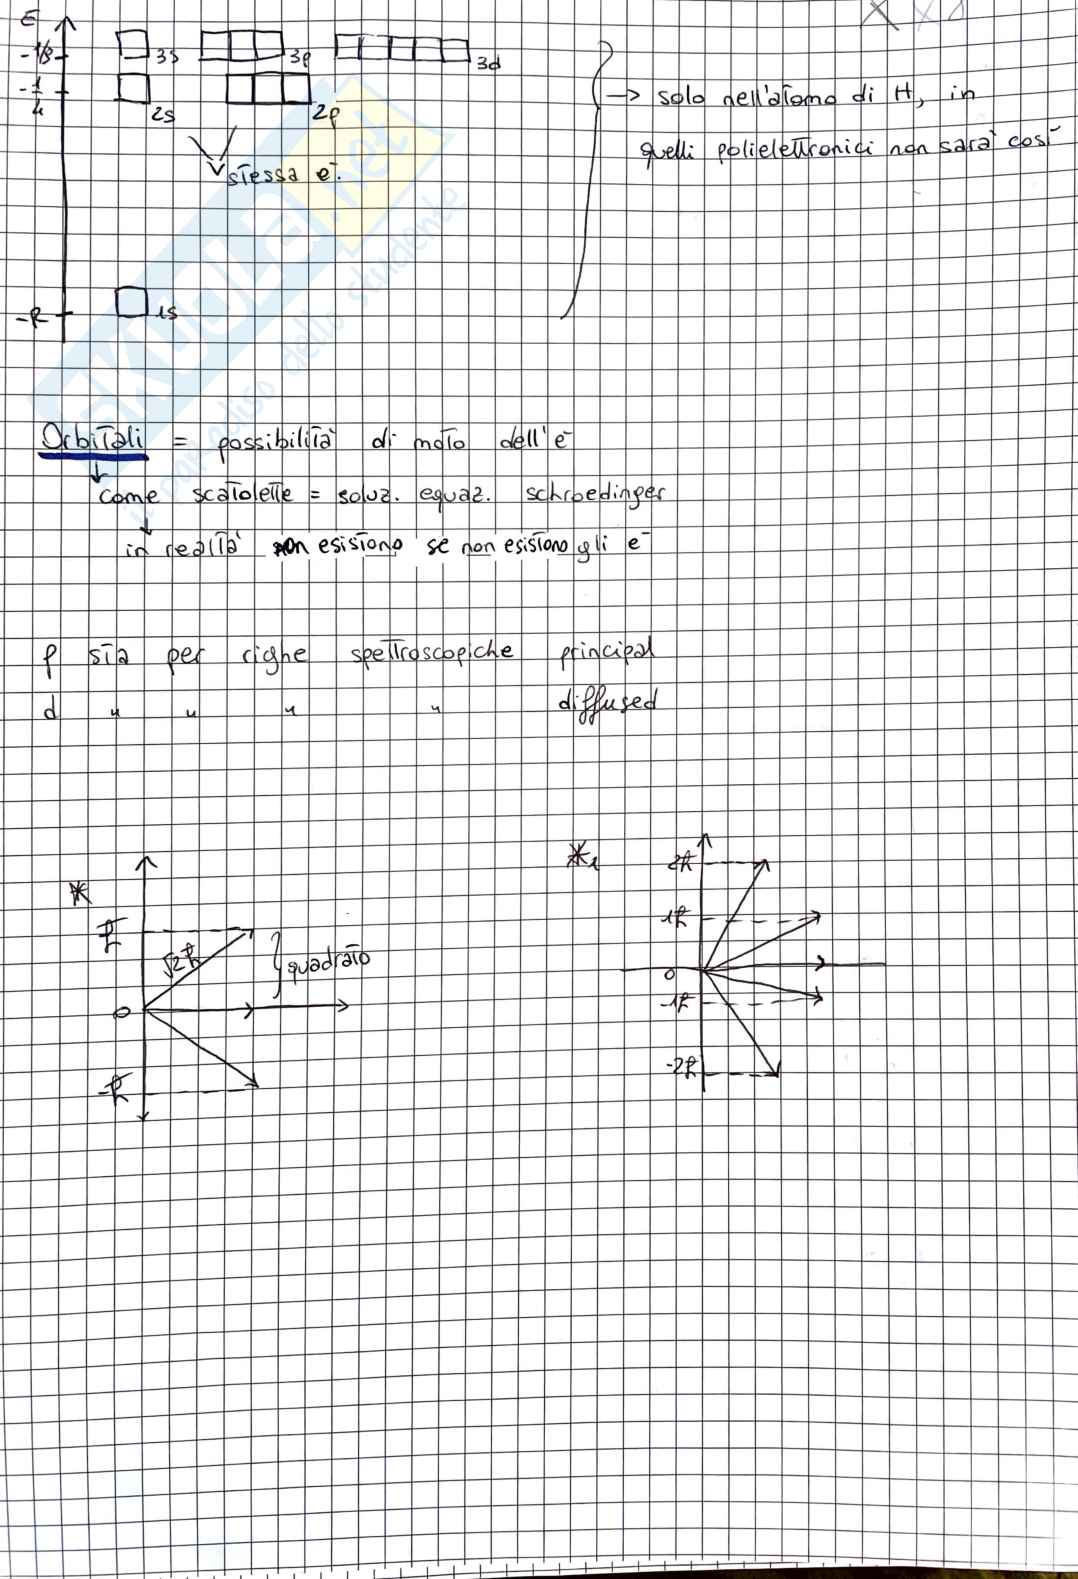 E
-1/9
3s
3p
3d
-1/4
2s
2p
→ solo nell'atomo di H, in
quelli polielettronici non sarà così
stessa e.
-R
1s
Orbitali = possibilità di moto dell'e⁻
come scatolette = soluz. equaz. schroedinger
in realtà non esistono se non esistono gli e⁻
p sta per righe spettroscopiche principal
d " " " " diffused
*
ħ
√2ħ
quadrato
0
-ħ
*₁
2ħ
1ħ
0
-1ħ
-2ħ
SKUOLA.net
il paradiso dello studente